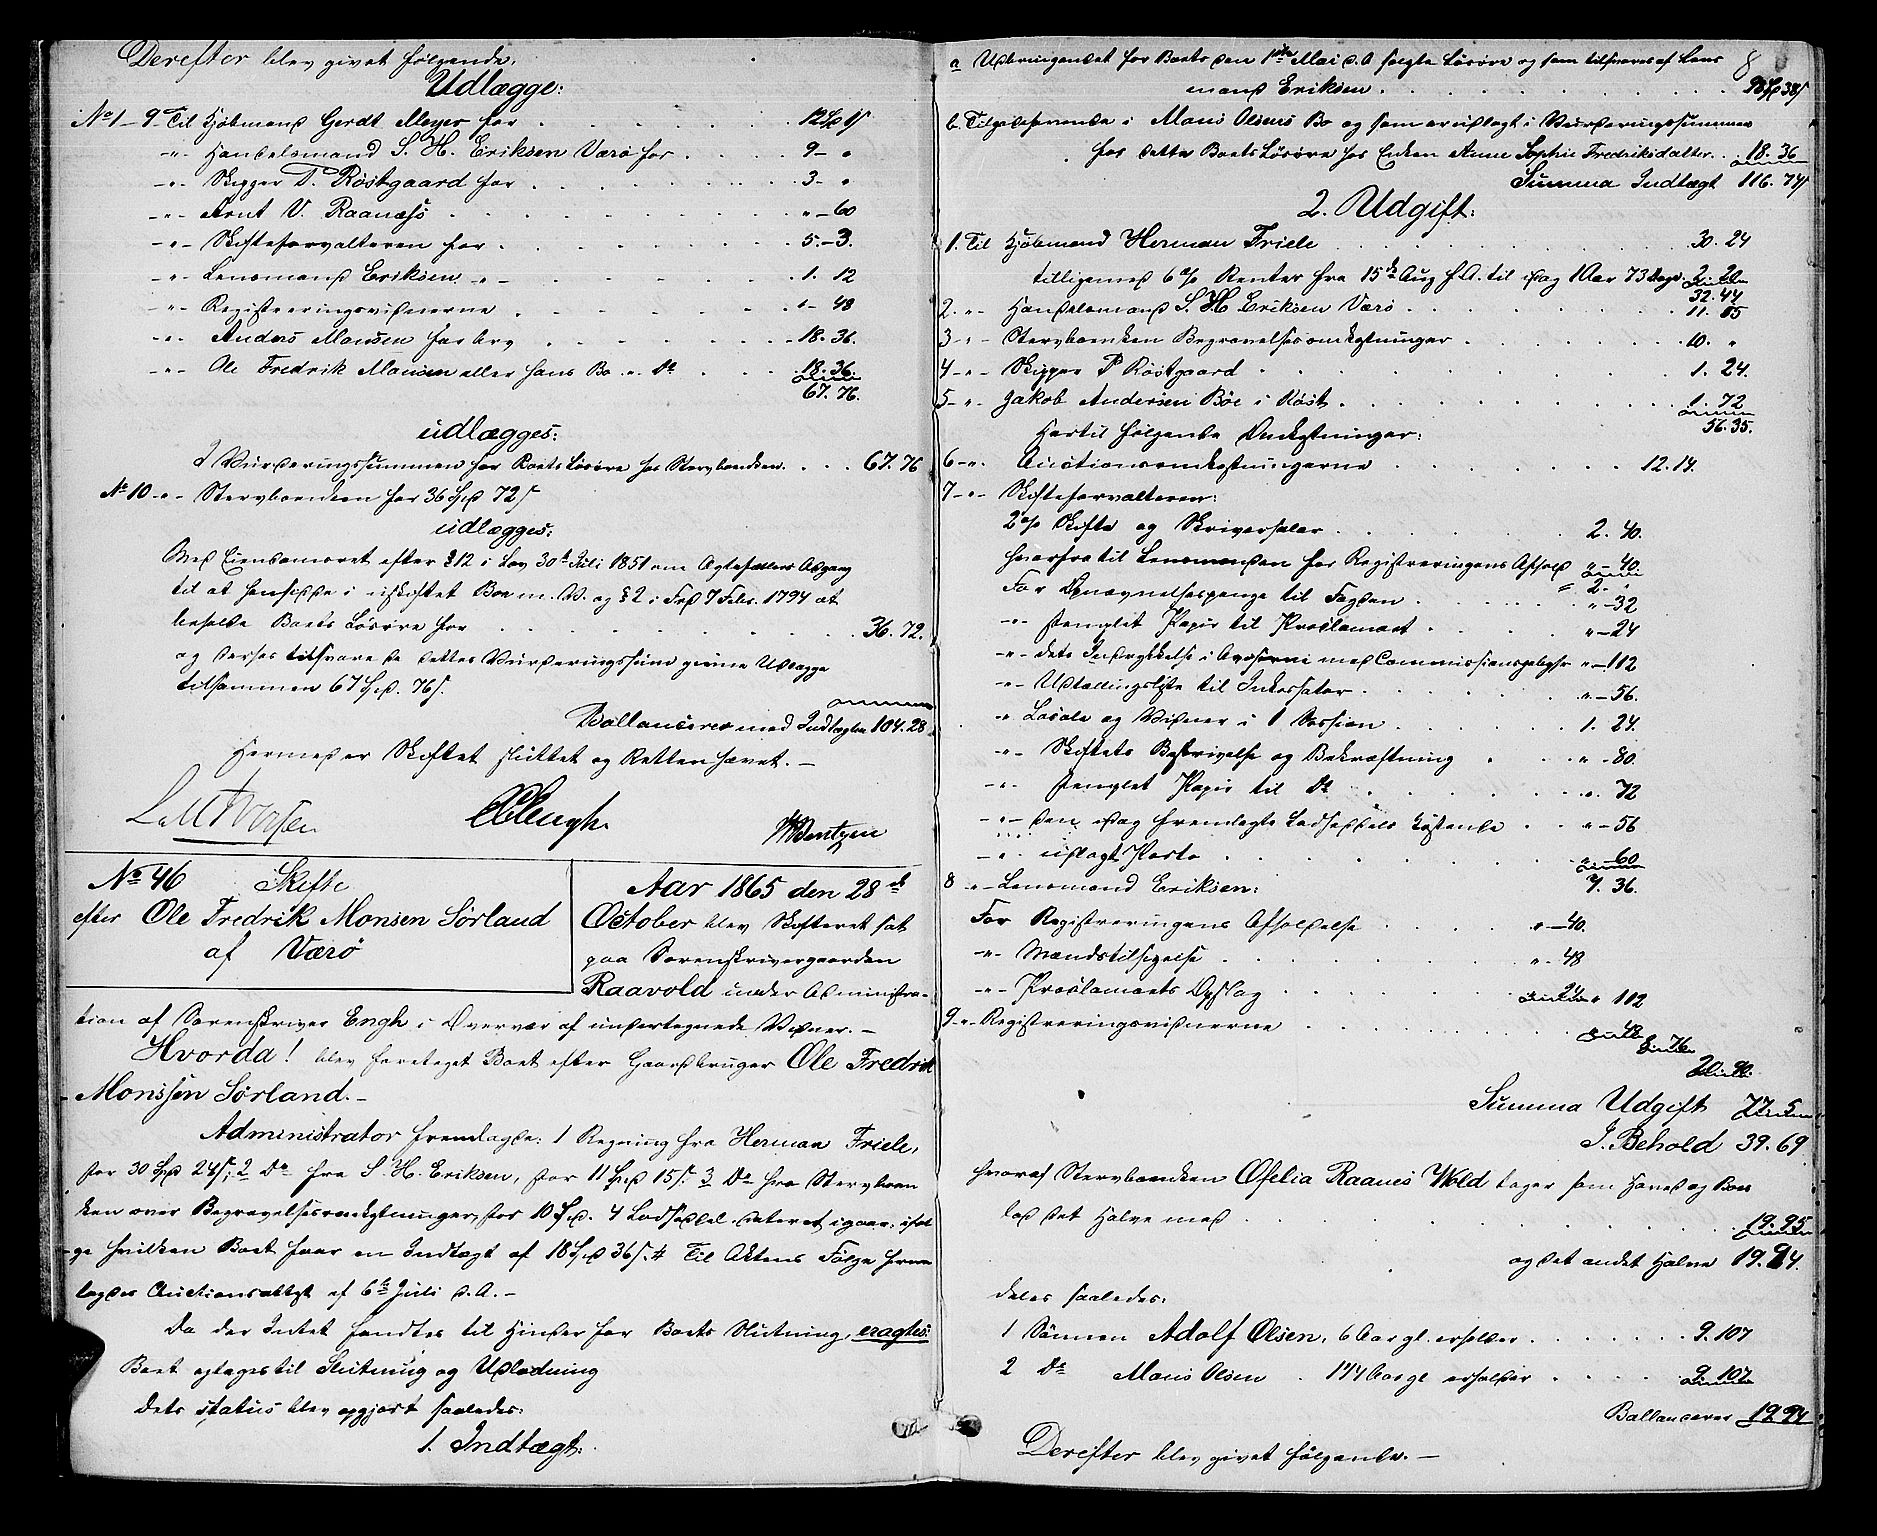 Derefter blev givet følgende,
Udlægge:
No 1-9 Til Kjøbmand Gerdt Meyer for 12 Spd 1 s
-"- Handelsmand S. H. Eriksen Værø for 9 - "
-"- Skipper P. Røstgaard for 3 - "
-"- Arnt V. Raanæss " - 60
-"- Skifteforvalteren for 5. - 3.
-"- Lensmand Eriksen -"- 1. 12
-"- Registreringsvidnerne 1 - 48
-"- Anders Monsen for Arv 18. 36.
-"- Ole Fredrik Monsen eller hans Bo " Do 18. 36.
67. 76.
udlægges:
I Vurderingssummen for Boets Løsøre hos Stervboenken 67. 76
No 10 -"- Stervboenken for 36 Spd 72 s
udlægges:
Med Eiendomsret efter § 12 i Lov 30te Juli 1851 om Ægtefællers Adgang
til at hensidde i uskiftet Bo m. V. og § 2 i Frd 7 Febr. 1794 at
beholde Boets Løsøre for 36. 72.
og derfor tilsvare de dettes Vurderingssum givne Udlægge
tilsammen 67 Spd. 76 s.
Ballancerer med Indtægten 104. 28
Hermed er Skiftet sluttet og Retten hævet. -
CEngh.
WBentzen
No 46 Skifte
efter Ole Fredrik Monsen Sørland
af Værø
Aar 1865 den 28de
October blev Skifteret sat
paa Sorenskrivergaarden
Raavold under Administra-
tion af Sorenskriver Engh i Overvær af undertegnede Vidner. -
Hvorda! blev foretaget Boet efter Gaardbruger Ole Fredrik
Monssen Sørland. -
Administrator fremlagde: 1 Regning fra Herman Friele,
stor 30 Spd 24 s; 2 Do fra S. H. Eriksen, stor 11 Spd 15 s. 3 Do fra Stervboen
ken over Begravelsesomkostninger, stor 10 Spd. 4 Lodseddel dateret igaar, iføl
ge hvilken Boet faar en Indtægt af 18 Spd 36 s. # Til Aktens Følge frem
lagdes Auctionsudtog af 6te Juli d. A. -
Da der Intet fandtes til Hinder for Boets Slutning, eragtes:
Boet optages til Slutning og Udlodning
Dets status blev opgjort saaledes:
1. Indtægt:
8
a Udbringendet for Boets den 1ste Mai d. A solgte Løsøre og som tilsvares af Lens
mand Eriksen 98 Spd 38 s
b. Tilgodehavende i Mons Olsens Bo og som er udlagt i Vurderingssummen
for dette Boets Løsøre hos Enken Anne Sophie Fredriksdatter 18. 36
Summa Indtægt 116. 74 s
2. Udgift:
1. Til Kjøbmand Herman Friele 30. 24
tilligemed 6 % Renter fra 15de Aug f. A. til idag 1 Aar 73 Dage 2. 20
32. 44
2. " Handelsmand S. H Eriksen Værø 11. 15
3 -"- Stervboenken Begravelsesomkostninger 10. "
4 -"- Skipper P Røstgaard 1. 24.
5 -"- Jakob Andersen Bøe i Røst 1. 72
56. 35.
Hertil følgende Omkostninger:
6 -"- Auctionsomkostningerne 12. 14.
7 -"- Skifteforvalteren:
2 % Skifte og Skriversalar 2. 40.
hvorfra til Lensmanden for Registreringens Afhold " - 40.
2. "
For Opnævnelsespenge til Fogden " - 32
-"- stemplet Papir til Proclamaet " - 24
-"- dets Indrykkelse i Aviserne med Commissionsgebyhr " - 112
-"- Udtællingsliste til Inkassator " - 56.
" Locale og Vidner i 1 Session 1. 24.
-"- Skiftets Beskrivelse og Bekræftning " - 80
-"- stemplet Papir til Do ". 72
-"- den idag fremlagte Lodseddels Kostende " - 56
-"- udlagt Porto " - 60
7. 36.
8 -"- Lensmand Eriksen:
For Registreringens Afholdelse " - 40.
-"- Mandstilsigelse ". 48
-"- Proclamaets Opslag 24 " 112
9 -"- Registreringsvidnerne " 48
76
20. 90.
Summa Udgift 77. 5
I. Behold 39. 69.
hvoraf Stervboenken Ofelia Raanes Wold tager som Hoved og Bos
lod det Halve med 19. 95
og det andet Halve 19. 94.
deles saaledes:
1 Sønnen Adolf Olsen, 6 Aar gl. erholder 9. 107
2 Do Mons Olsen 1 1/4 Aar gl erholder 9. 107
Ballancerer 19. 94
Derefter blev givet følgende. -